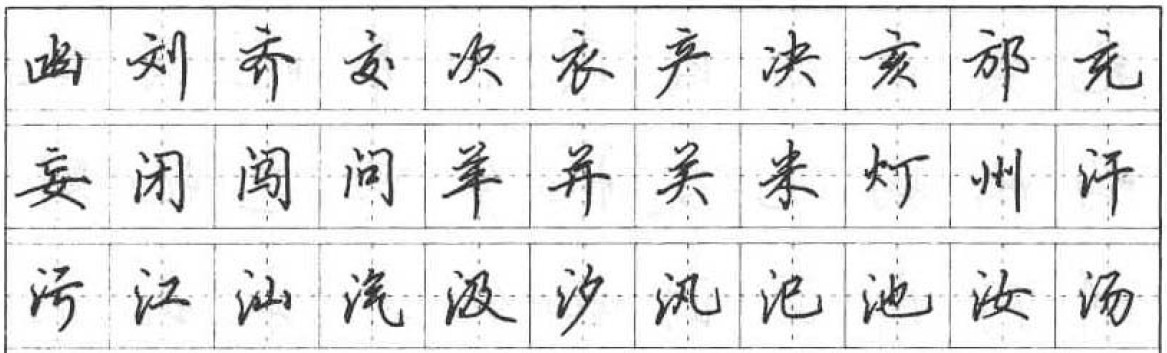 凼刘齐交次衣产决亥邡充
妄闭闯问羊并关米灯州汗
污江汕汔汲汐汛汜池汝汤